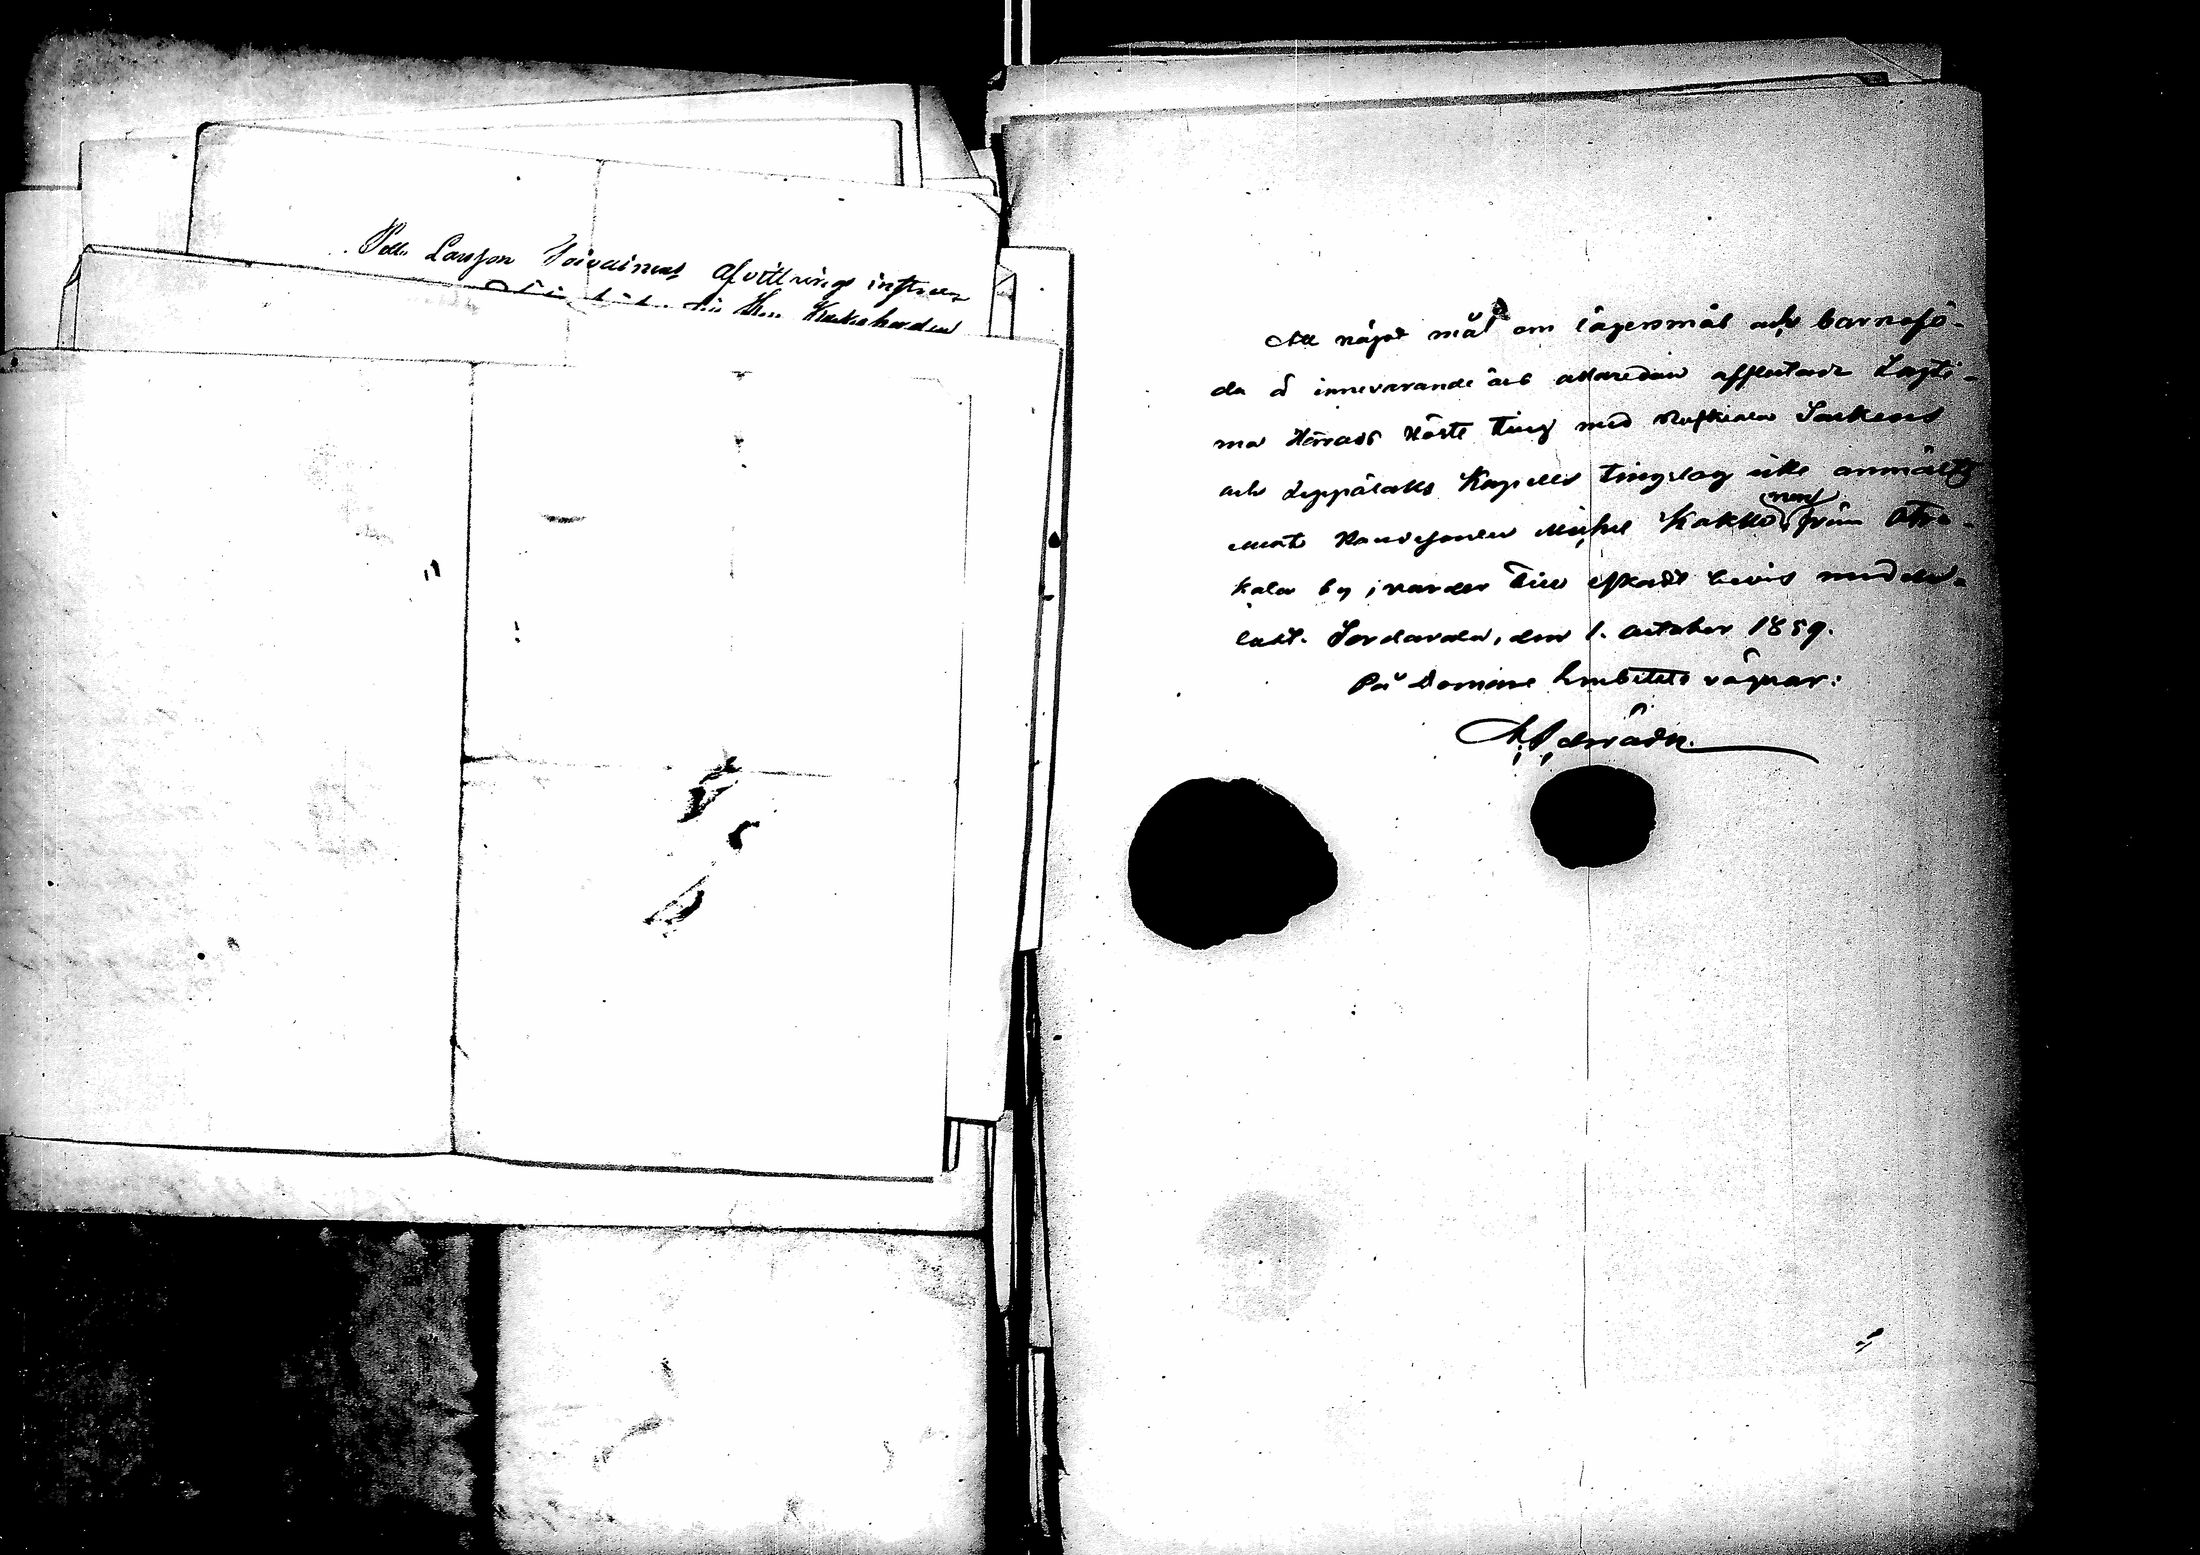 Larsson Hoivainens Afvittrings
Att något mål om lägersmål och barnafö-
da å innevarande års allaredan afslutade Lagti-
ma Härads Höste Ting med Ruskeala Soukens
och Leppälaks Kapells Tingslag icke anmälts
emot Bondesonen Michel Kakkonen från Otra-
kala by, varder till äskadt bevis meddel-
ladt. Sordavala, den 1. october 1859.
På Domare Embetets vägnar: